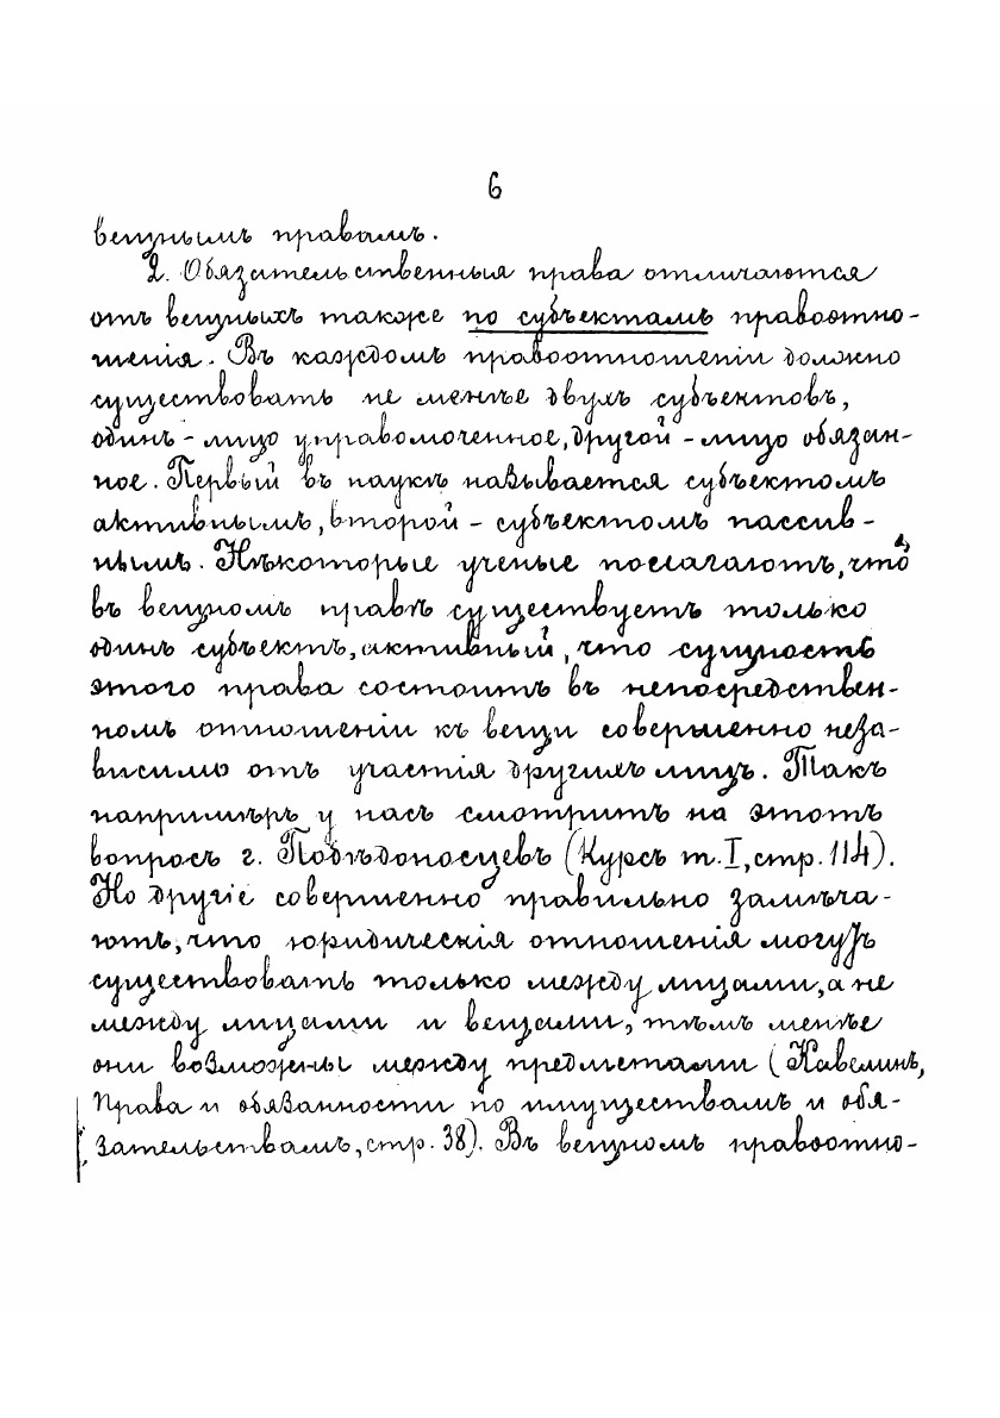 6
вещнымъ правамъ.
2. Обязательственныя права отличаются
отъ вещныхъ также по субъектамъ правоотно-
шенія. Въ каждомъ правоотношеніи должно
существовать не менѣе двухъ субъектовъ,
одинъ - лицо управомоченное, другой - лицо обязан-
ное. Первый въ наукѣ называется субъектомъ
активнымъ, второй - субъектомъ пассив-
нымъ. Нѣкоторые ученые полагаютъ, что
въ вещномъ правѣ существуетъ только
одинъ субъектъ, активный, что сущность
этого права состоитъ въ непосредствен-
номъ отношеніи къ вещи совершенно неза-
висимо отъ участія другихъ лицъ. Такъ
напримѣръ у насъ смотритъ на этотъ
вопросъ г. Побѣдоносцевъ (Курсъ т. I, стр. 114).
Но другіе совершенно правильно замѣча-
ютъ, что юридическія отношенія могутъ
существовать только между лицами, а не
между лицами и вещами, тѣмъ менѣе
они возможны между предметами (Кавелинъ,
Права и обязанности по имуществамъ и обя-
зательствамъ, стр. 38). Въ вещномъ правоотно-